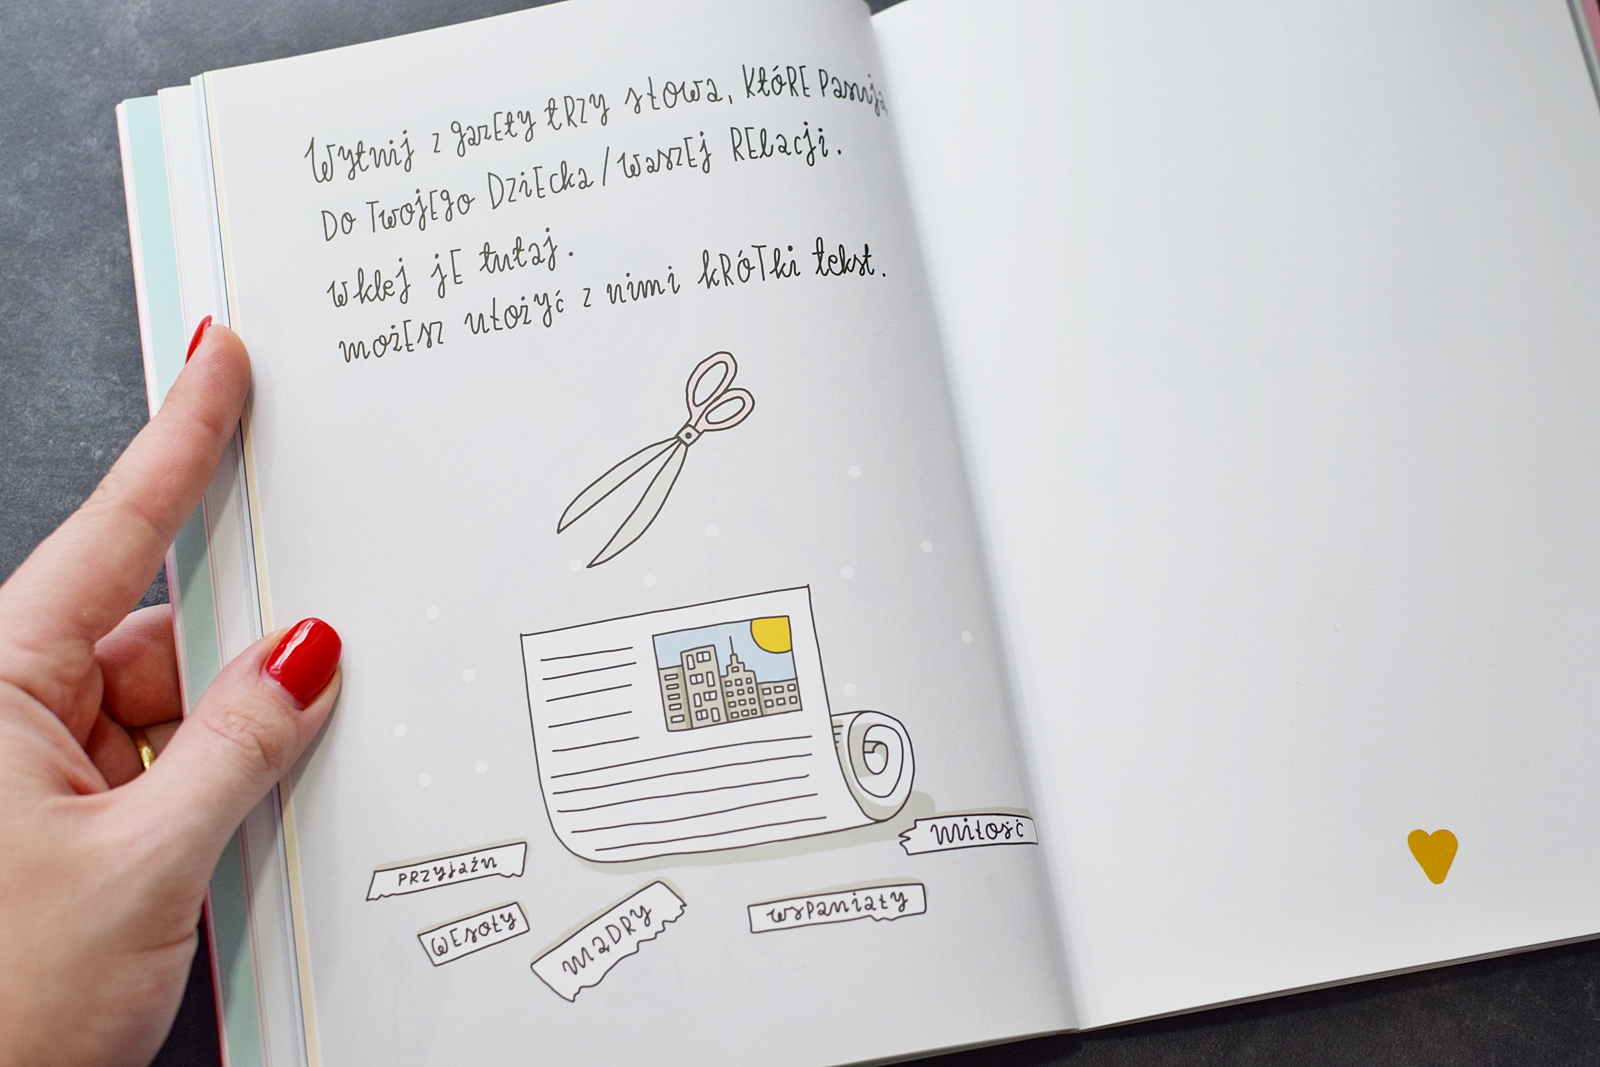 Wytnij z gazety trzy słowa, które pasują
do Twojego dziecka/waszej relacji.
wklej je tutaj.
możesz ułożyć z nimi krótki tekst.
miłość
przyjaźń
wesoły
mądry
wspaniały